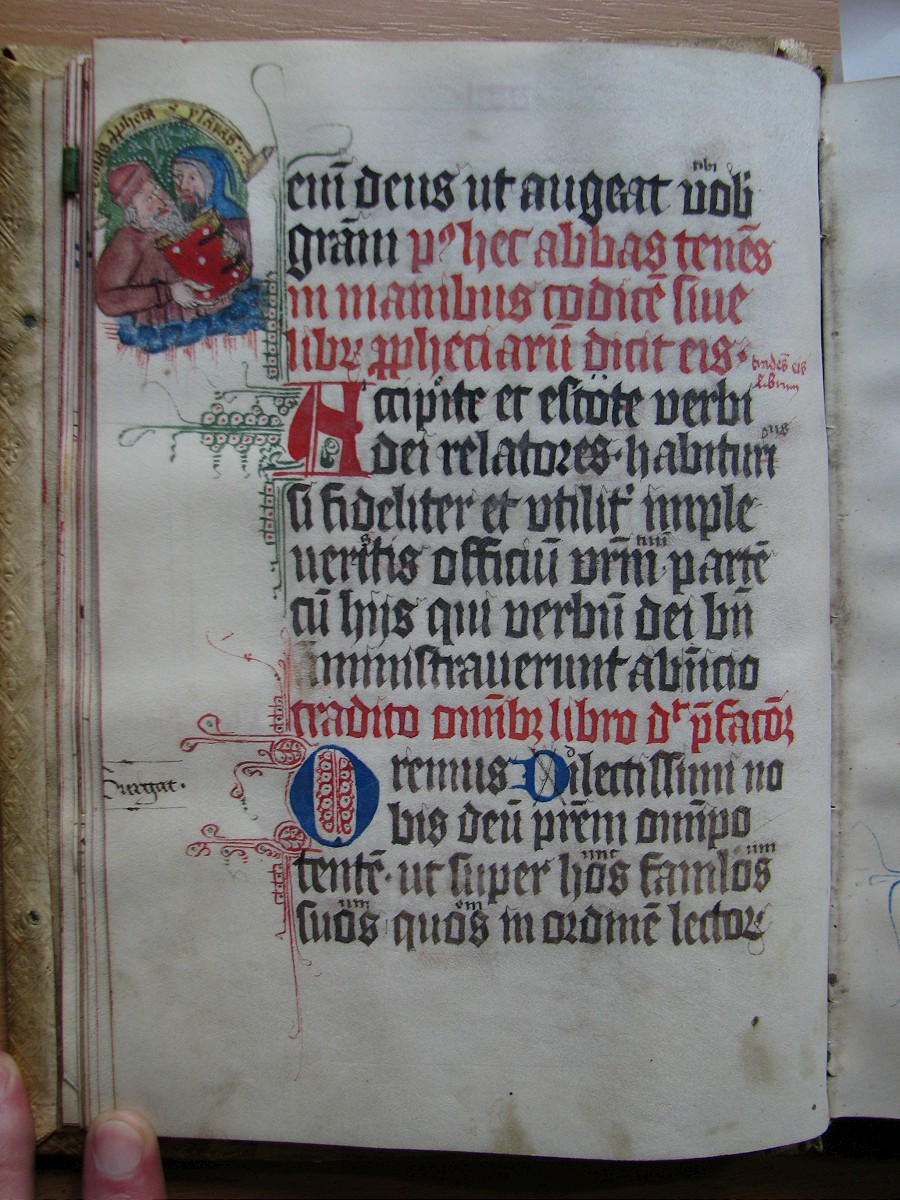 enī deus ut augeat vobi
tibi
grām pꝰ hec abbas tenēs
in manibus codicē siue
libꝝ ꝓpheciarū dicit eis·
tradēs eis
librum
Accipite et estote verbi
dei relatores· habituri
si fideliter et vtilitʼ imple
ueritis officiū vrm̄ partē
cū hijs qui verbū dei bn̄
ministrauerunt ab inicio
tradito om̄ibꝫ libro dʳ p̄facōꝫ
Oremus Dilectissimi no
Surgat·
bis deū prēm om̄ipo
tentē· ut super hos famlos
unc um
suos quos in ordinē lectoꝝ
um em